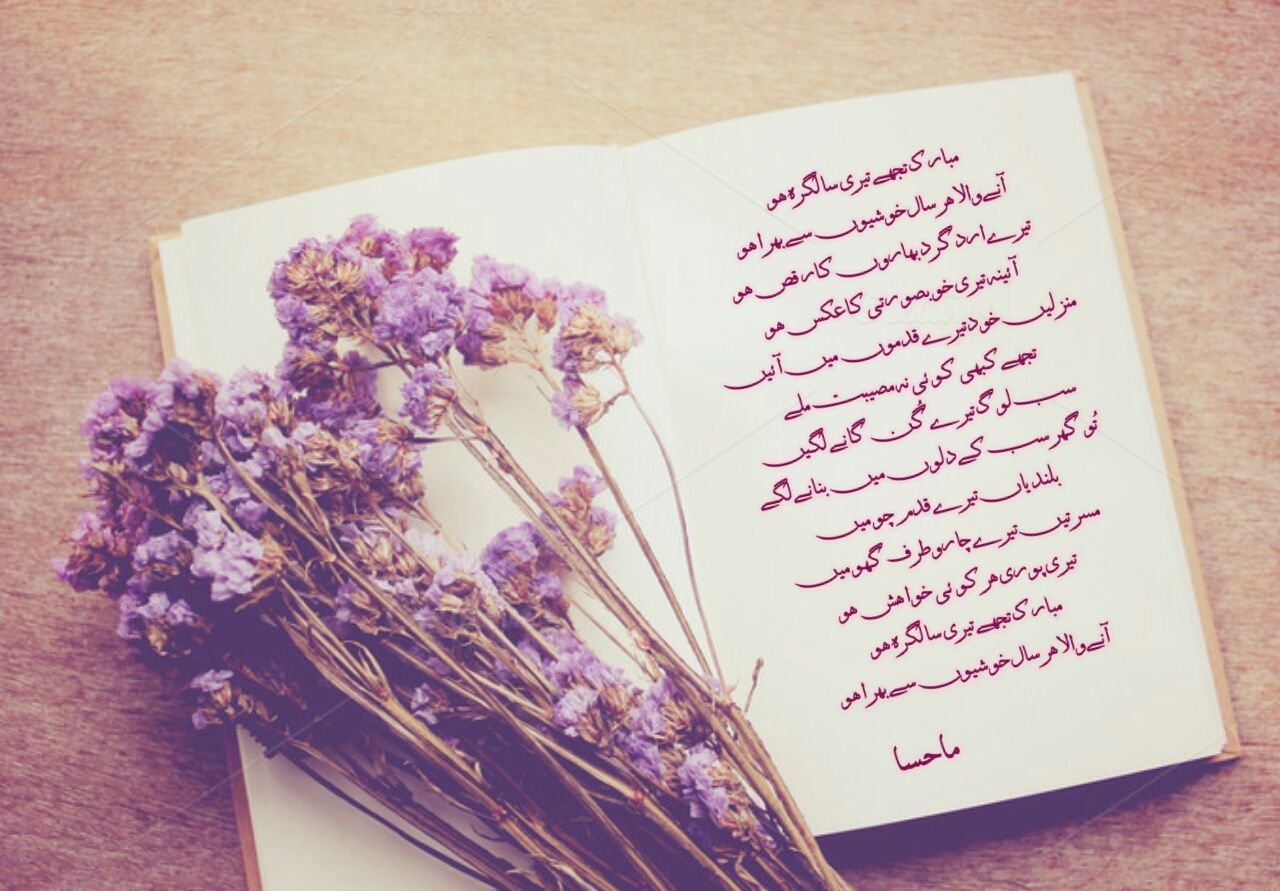 مبارک تجھے تیری سالگرہ ہو
آنے والا ہر سال خوشیوں سے بھرا ہو
تیرے ارد گرد بہاروں کا رقص ہو
آئینہ تیری خوبصورتی کا عکس ہو
منزلیں خود تیرے قدموں میں آئیں
تجھے کبھی کوئی نہ مصیبت ملے
سب لوگ تیرے گُن گانے لگیں
تُو گھر سب کے دلوں میں بنانے لگے
بلندیاں تیرے قدم چومیں
مسرتیں تیرے چار سو طرف گھومیں
تیری پوری ہر کوئی خواہش ہو
مبارک تجھے تیری سالگرہ ہو
آنے والا ہر سال خوشیوں سے بھرا ہو
ماحسا